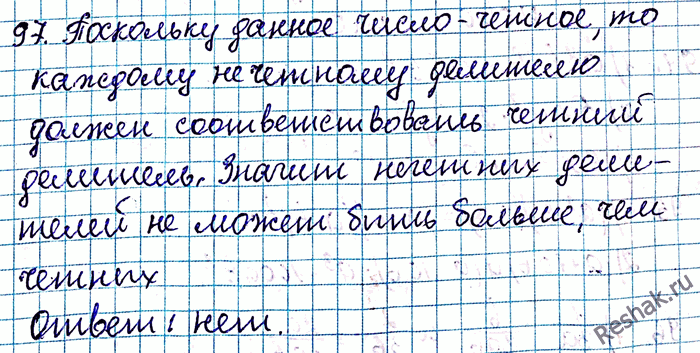 97. Поскольку данное число-четное, то
каждому нечетному делителю
должен соответствовать четний
делитель. Значит нечетних дели-
телей не может бить больше, чем
четних
Ответ: нет.
Reshak.ru